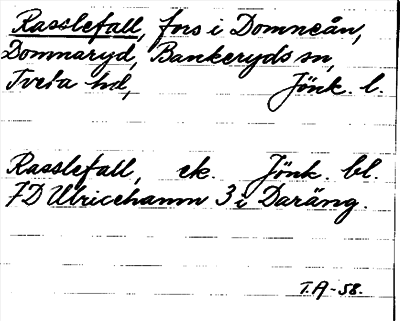 Rasslefall, fors i Domneån,
Domnaryd, Bankeryds sn,
Tveta hd, Jönk. l.
Rasslefall, ek. Jönk. bl.
7D Ulricehamn 3 i Daräng.
T.A-58.